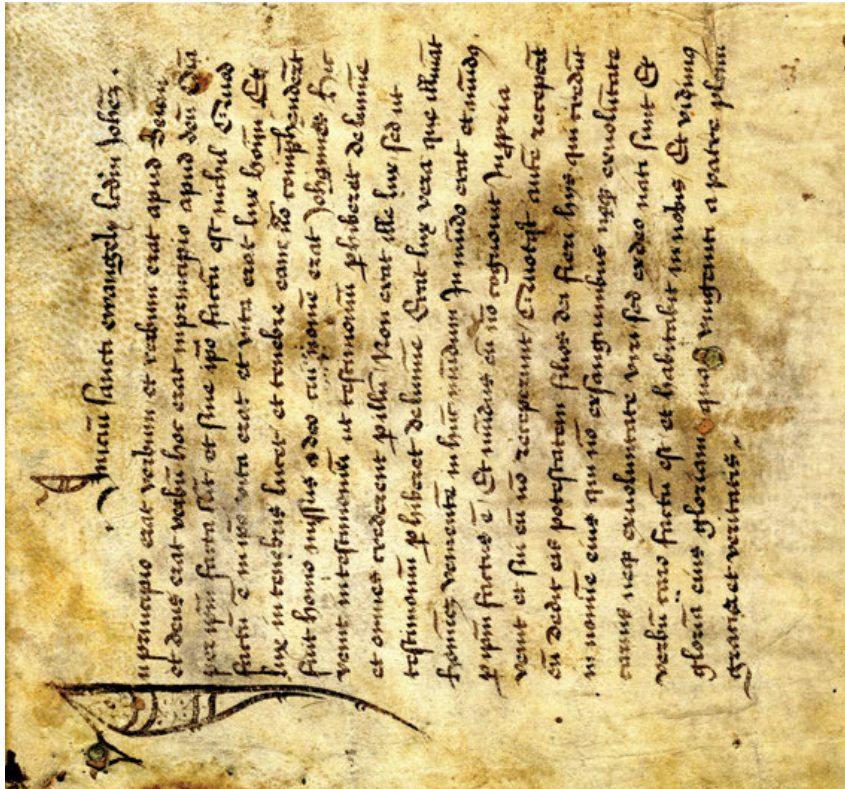 Iniciū sancti ewangely scdm Johēz.
In principio erat verbum et verbum erat apud Deum
et deus erat verbū hoc erat in principio apud deū Oīa
per ip̄m facta sūt et sine ip̄o factū est nichil Quod
factū ē in ip̄o vita erat et vita erat lux hoīm Et
lux in tenebris lucet et tenebre eam nō comphenderūt
fuit homo missus a deo cui nomē erat Johannes hic
venit in testimoniū ut testimoniū phiberet de lumīe
et omnes crederent p illū Non erat ille lux sed ut
testimoniū phiberet de lumīe Erat lux vera que illumīat
homīez veniente in hūc mūdum In mūdo erat et mūdꝰ
p ip̄m factus ē Et mūdus eū nō cognouit In ppria
venit et sui eū nō receperunt Quotqt aūt receperūt
eū dedit eis potestatem filios dei fieri hijs qui credūt
in nomīe eius qui nō ex sanguinibus neqꝫ ex volūtate
carnis neqꝫ ex voluntate viri sed ex deo nati sunt Et
verbū caro factū est et habitabit in nobis Et vidimꝰ
gloriā eius gloriam quasi vnigeniti a patre plenū
gracie et veritatis